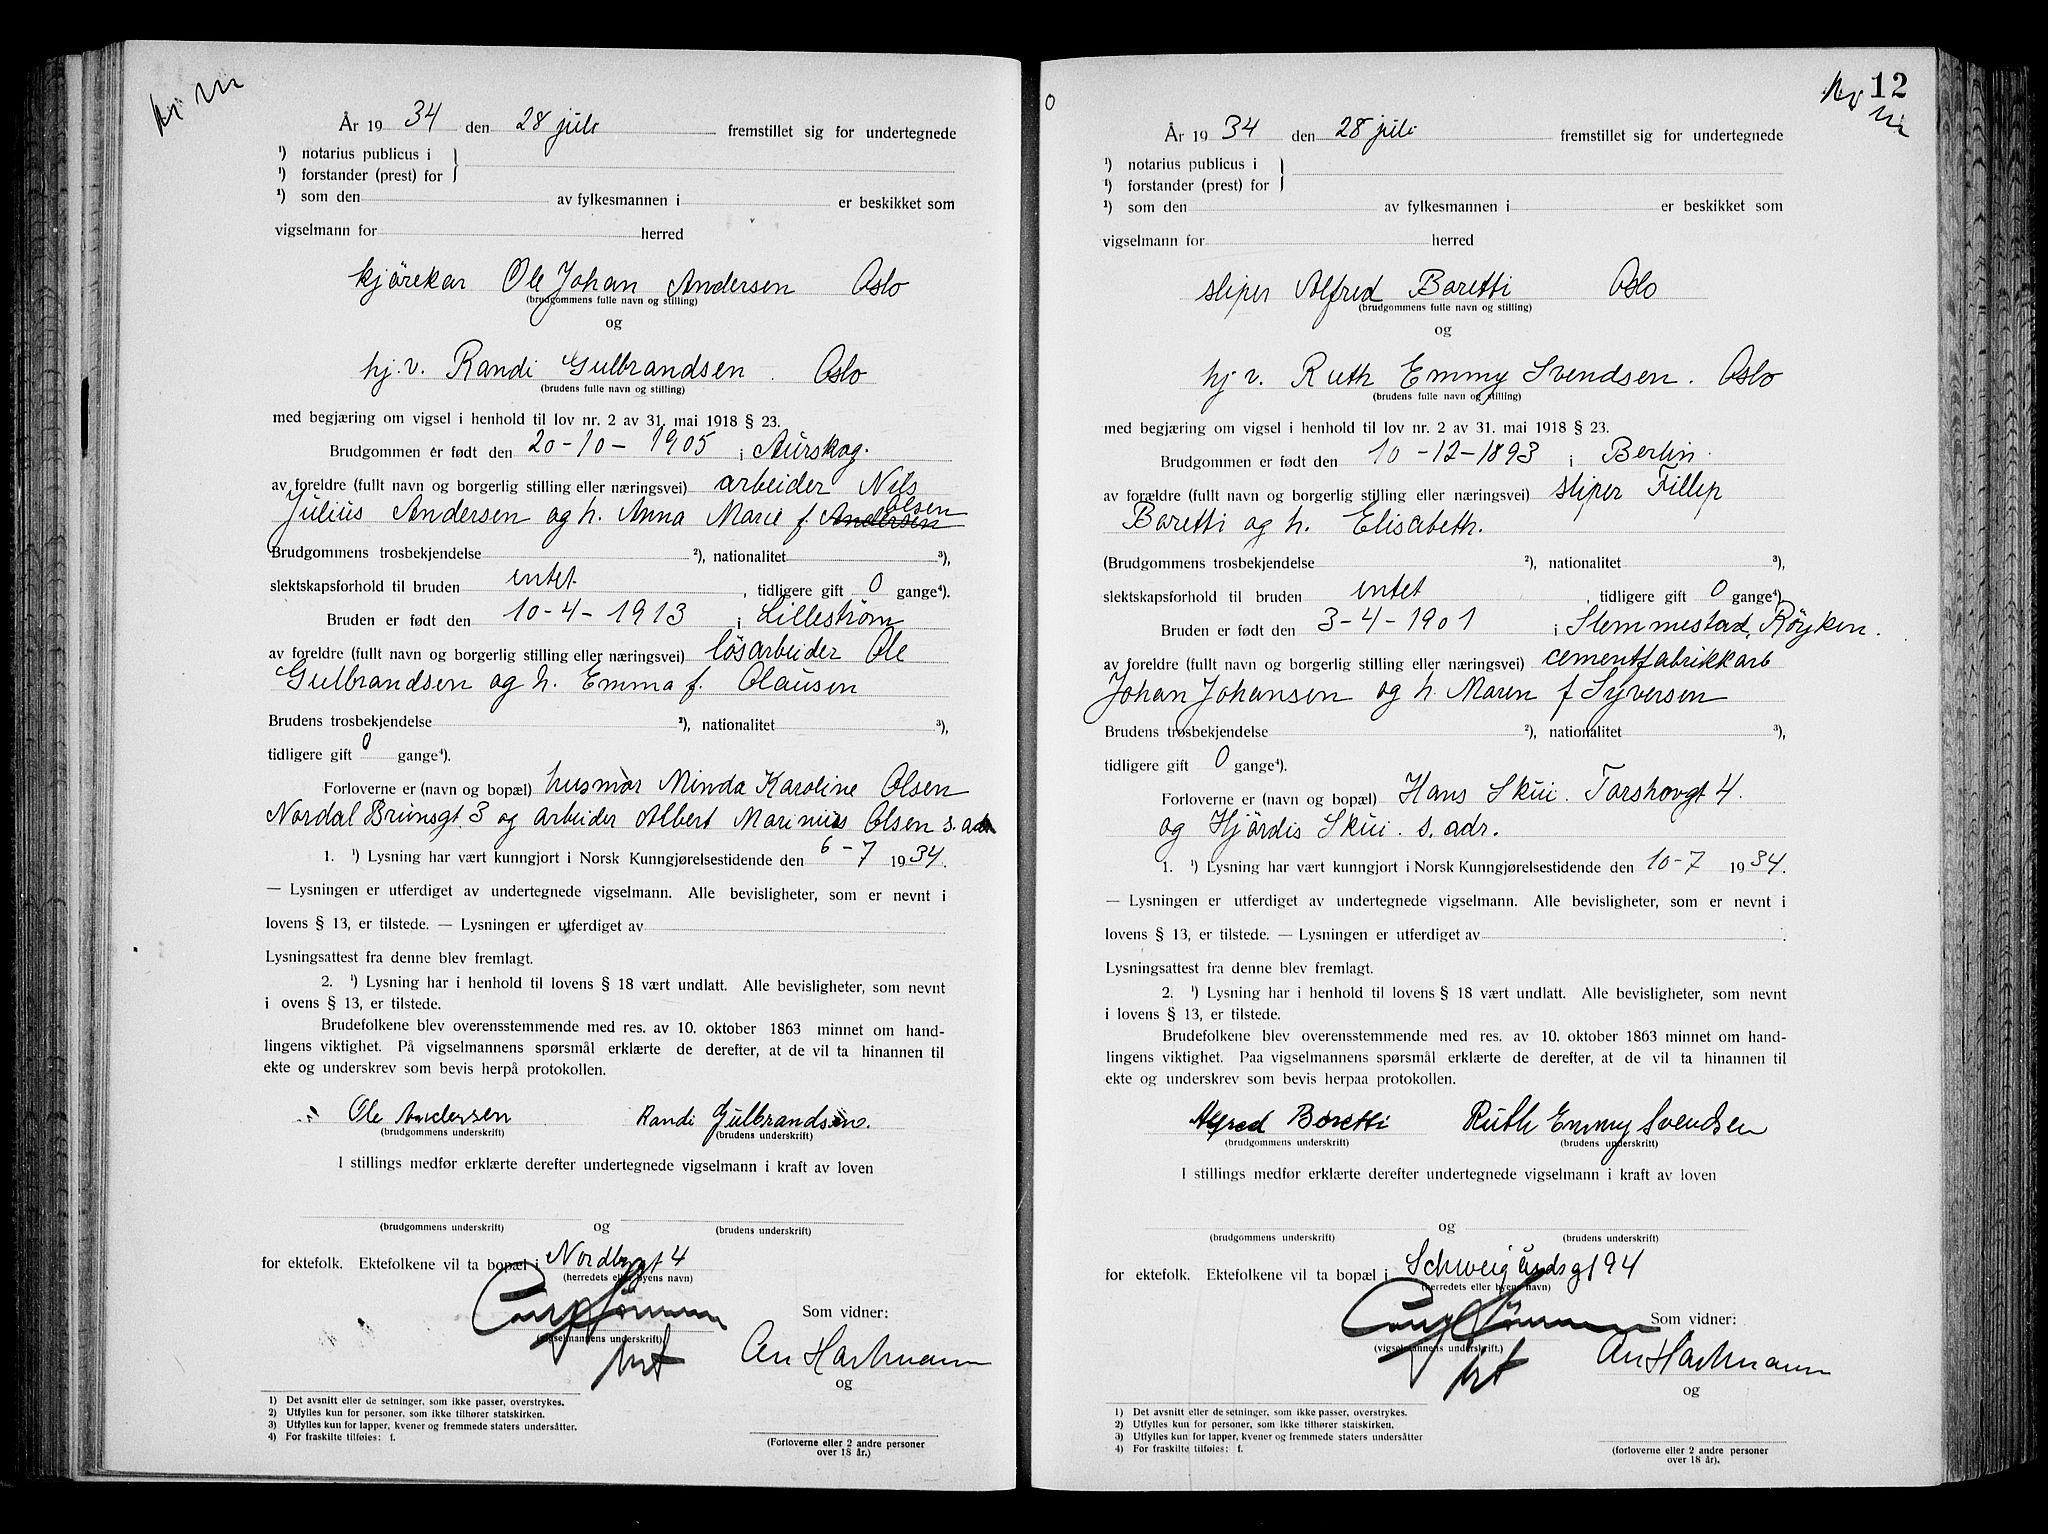 År 19 34 den 28 juli fremstillet sig for undertegnede
¹) notarius publicus i
¹) forstander (prest) for
¹) som den av fylkesmannen i er beskikket som
vigselmann for herred
kjörekar Ole Johan Andersen Oslo
(brudgommens fulle navn og stilling)
og
hj. v. Randi Gulbrandsen. Oslo
(brudens fulle navn og stilling)
med begjæring om vigsel i henhold til lov nr. 2 av 31. mai 1918 § 23.
Brudgommen er født den 20-10-1905 i Aurskog.
av foreldre (fullt navn og borgerlig stilling eller næringsvei) arbeider Nils
Julius Andersen og h. Anna Marie f. Andersen Olsen
Brudgommens trosbekjendelse ²), nationalitet ³),
slektskapsforhold til bruden intet , tidligere gift 0 gange⁴).
Bruden er født den 10-4-1913 i Lilleström
av foreldre (fullt navn og borgerlig stilling eller næringsvei) lösarbeider Ole
Gulbrandsen og h. Emma f. Olausen
Brudens trosbekjendelse ²), nationalitet ³),
tidligere gift 0 gange⁴).
Forloverne er (navn og bopæl) husmor Minda Karoline Olsen
Nordal Brunsgt. 3 og arbeider Albert Marinius Olsen s. adr
1. ¹) Lysning har vært kunngjort i Norsk Kunngjørelsestidende den 6-7 1934.
— Lysningen er utferdiget av undertegnede vigselmann. Alle bevisligheter, som er nevnt i
lovens § 13, er tilstede. — Lysningen er utferdiget av
Lysningsattest fra denne blev fremlagt.
2. ¹) Lysning har i henhold til lovens § 18 vært undlatt. Alle bevisligheter, som nevnt
i ovens § 13, er tilstede.
Brudefolkene blev overensstemmende med res. av 10. oktober 1863 minnet om hand-
lingens viktighet. På vigselmannens spørsmål erklærte de derefter, at de vil ta hinannen til
ekte og underskrev som bevis herpå protokollen.
Ole Andersen Randi Gulbrandsen.
(brudgommens underskrift) (brudens underskrift)
I stillings medfør erklærte derefter undertegnede vigselmann i kraft av loven
og
(brudgommens underskrift) (brudens underskrift)
for ektefolk. Ektefolkene vil ta bopæl i Nordbygt 4
(herredets eller byens navn)
Som vidner:
(vigselmannens underskrift)
Hartmann
og
1) Det avsnitt eller de setninger, som ikke passer, overstrykes.
2) Utfylles kun for personer, som ikke tilhører statskirken.
3) Utfylles kun for lapper, kvener og fremmede staters undersåtter.
4) For fraskilte tilføies: f.
(Forloverne eller 2 andre personer
over 18 år.)
12
År 19 34 den 28 juli fremstillet sig for undertegnede
¹) notarius publicus i
¹) forstander (prest) for
¹) som den av fylkesmannen i er beskikket som
vigselmann for herred
sliper Alfred Boretti Oslo
(brudgommens fulle navn og stilling)
og
hj v. Ruth Emmy Svendsen. Oslo
(brudens fulle navn og stilling)
med begjæring om vigsel i henhold til lov nr. 2 av 31. mai 1918 § 23.
Brudgommen er født den 10-12-1893 i Berlin.
av forældre (fullt navn og borgerlig stilling eller næringsvei) sliper Fillip
Boretti og h. Elisabeth.
(Brudgommens trosbekjendelse ²), nationalitet ³),
slektskapsforhold til bruden intet , tidligere gift 0 gange⁴)
Bruden er født den 3-4-1901 i Slemmestad, Röyken.
av foreldre (fullt navn og borgerlig stilling eller næringsvei) cementfabrikkarb
Johan Johansen og h. Maren f Syversen
Brudens trosbekjendelse ²), nationalitet ³),
tidligere gift 0 gange⁴).
Forloverne er (navn og bopæl) Hans Skui. Torshovgt 4.
og Hjördis Skui. s. adr.
1. ¹) Lysning har vært kunngjort i Norsk Kunngjørelsestidende den 10-7 1934.
— Lysningen er utferdiget av undertegnede vigselmann. Alle bevisligheter, som er nevnt i
lovens § 13, er tilstede. — Lysningen er utferdiget av
Lysningsattest fra denne blev fremlagt.
2. ¹) Lysning har i henhold til lovens § 18 vært undlatt. Alle bevisligheter, som nevnt
i lovens § 13, er tilstede.
Brudefolkene blev overensstemmende med res. av 10. oktober 1863 minnet om hand-
lingens viktighet. Paa vigselmannens spørsmål erklærte de derefter, at de vil ta hinannen til
ekte og underskrev som bevis herpaa protokollen.
Alfred Boretti Ruth Emmy Svendsen
(brudgommens underskrift) (brudens underskrift)
I stillings medfør erklærte derefter undertegnede vigselmann i kraft av loven
og
(brudgommens underskrift) (brudens underskrift)
for ektefolk. Ektefolkene vil ta bopæl i Schweigårdsgt 94
(herredets eller byens navn)
Som vidner:
(vigselmannens underskrift.)
Hartmann
og
1) Det avsnitt eller de setninger, som ikke passer, overstrykes.
2) Utfylles kun for personer, som ikke tilhører statskirken.
3) Utfylles kun for lapper, kvener og fremmede staters undersåtter
4) For fraskilte tilføies: f.
(forloverne eller 2 andre personer
over 18 år.)